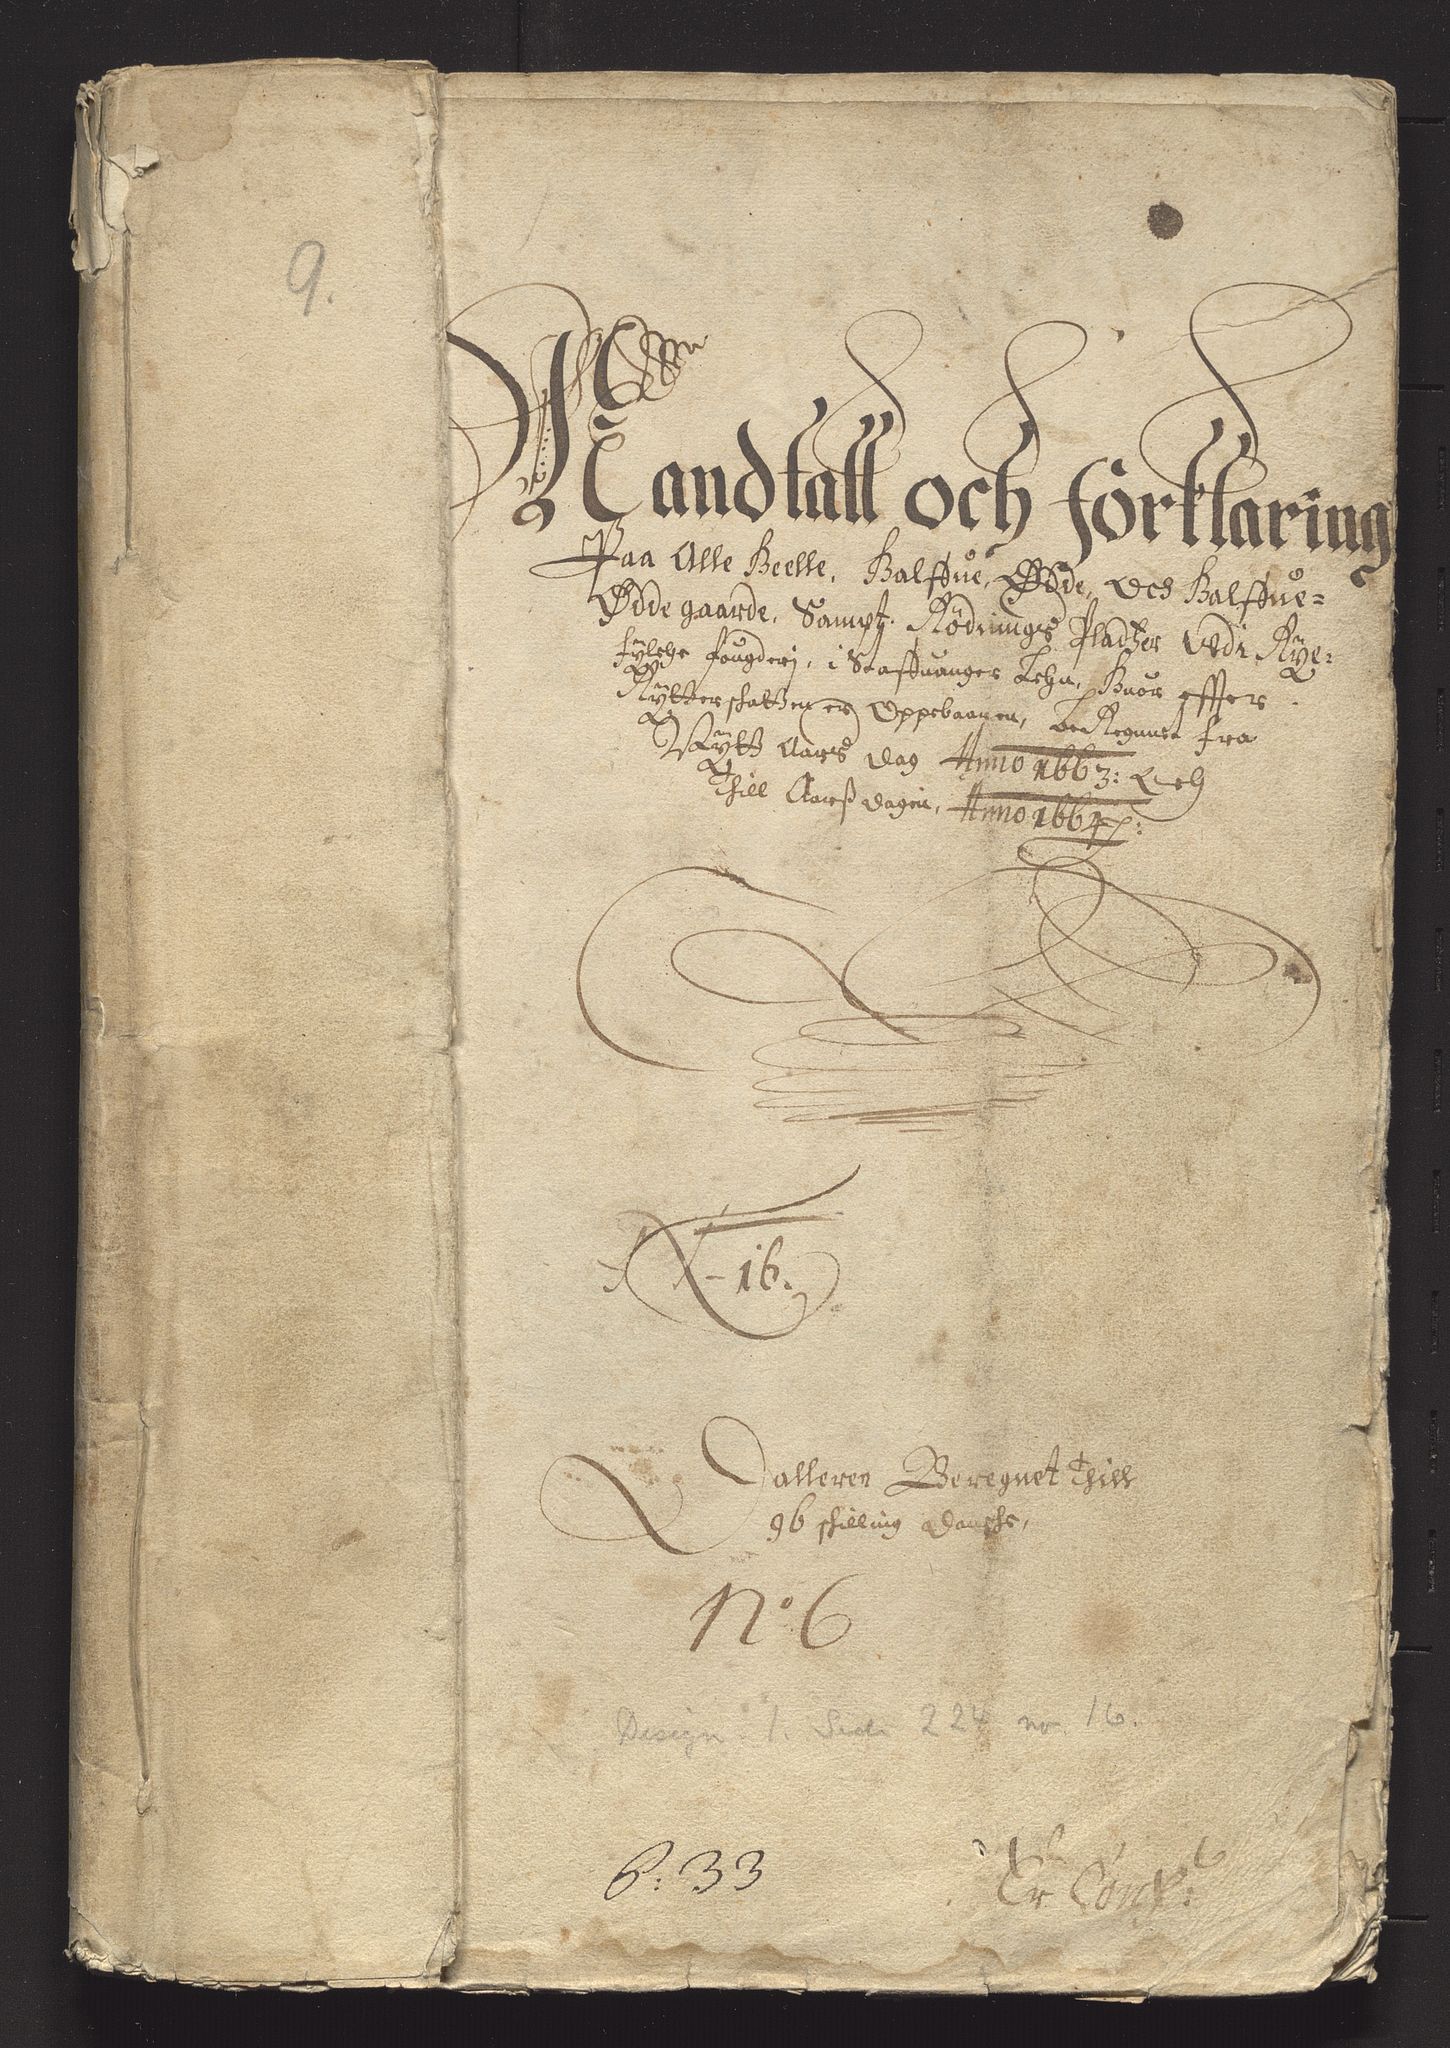 9.
Mandtall och förklaring
Paa Alle Heelle, Halffue, Ødde, och Halffue=
Ødde gaarde, Sampt Rödnings Pladtzer Vdi Rÿe=
fÿlche fougderj, i Staffuanger Lehn, Huor effter
Rÿtterschatten er Oppebaaren, beRegnet fra
Nÿtt Aars dag Anno 1663: Och
Thill Aarsz dagen, Anno 1664:
16.
Dalleren Beregnet Thill
96 schilling danske,
No 6
Design. 1. Side 224 no. 16.
6: 33
Er